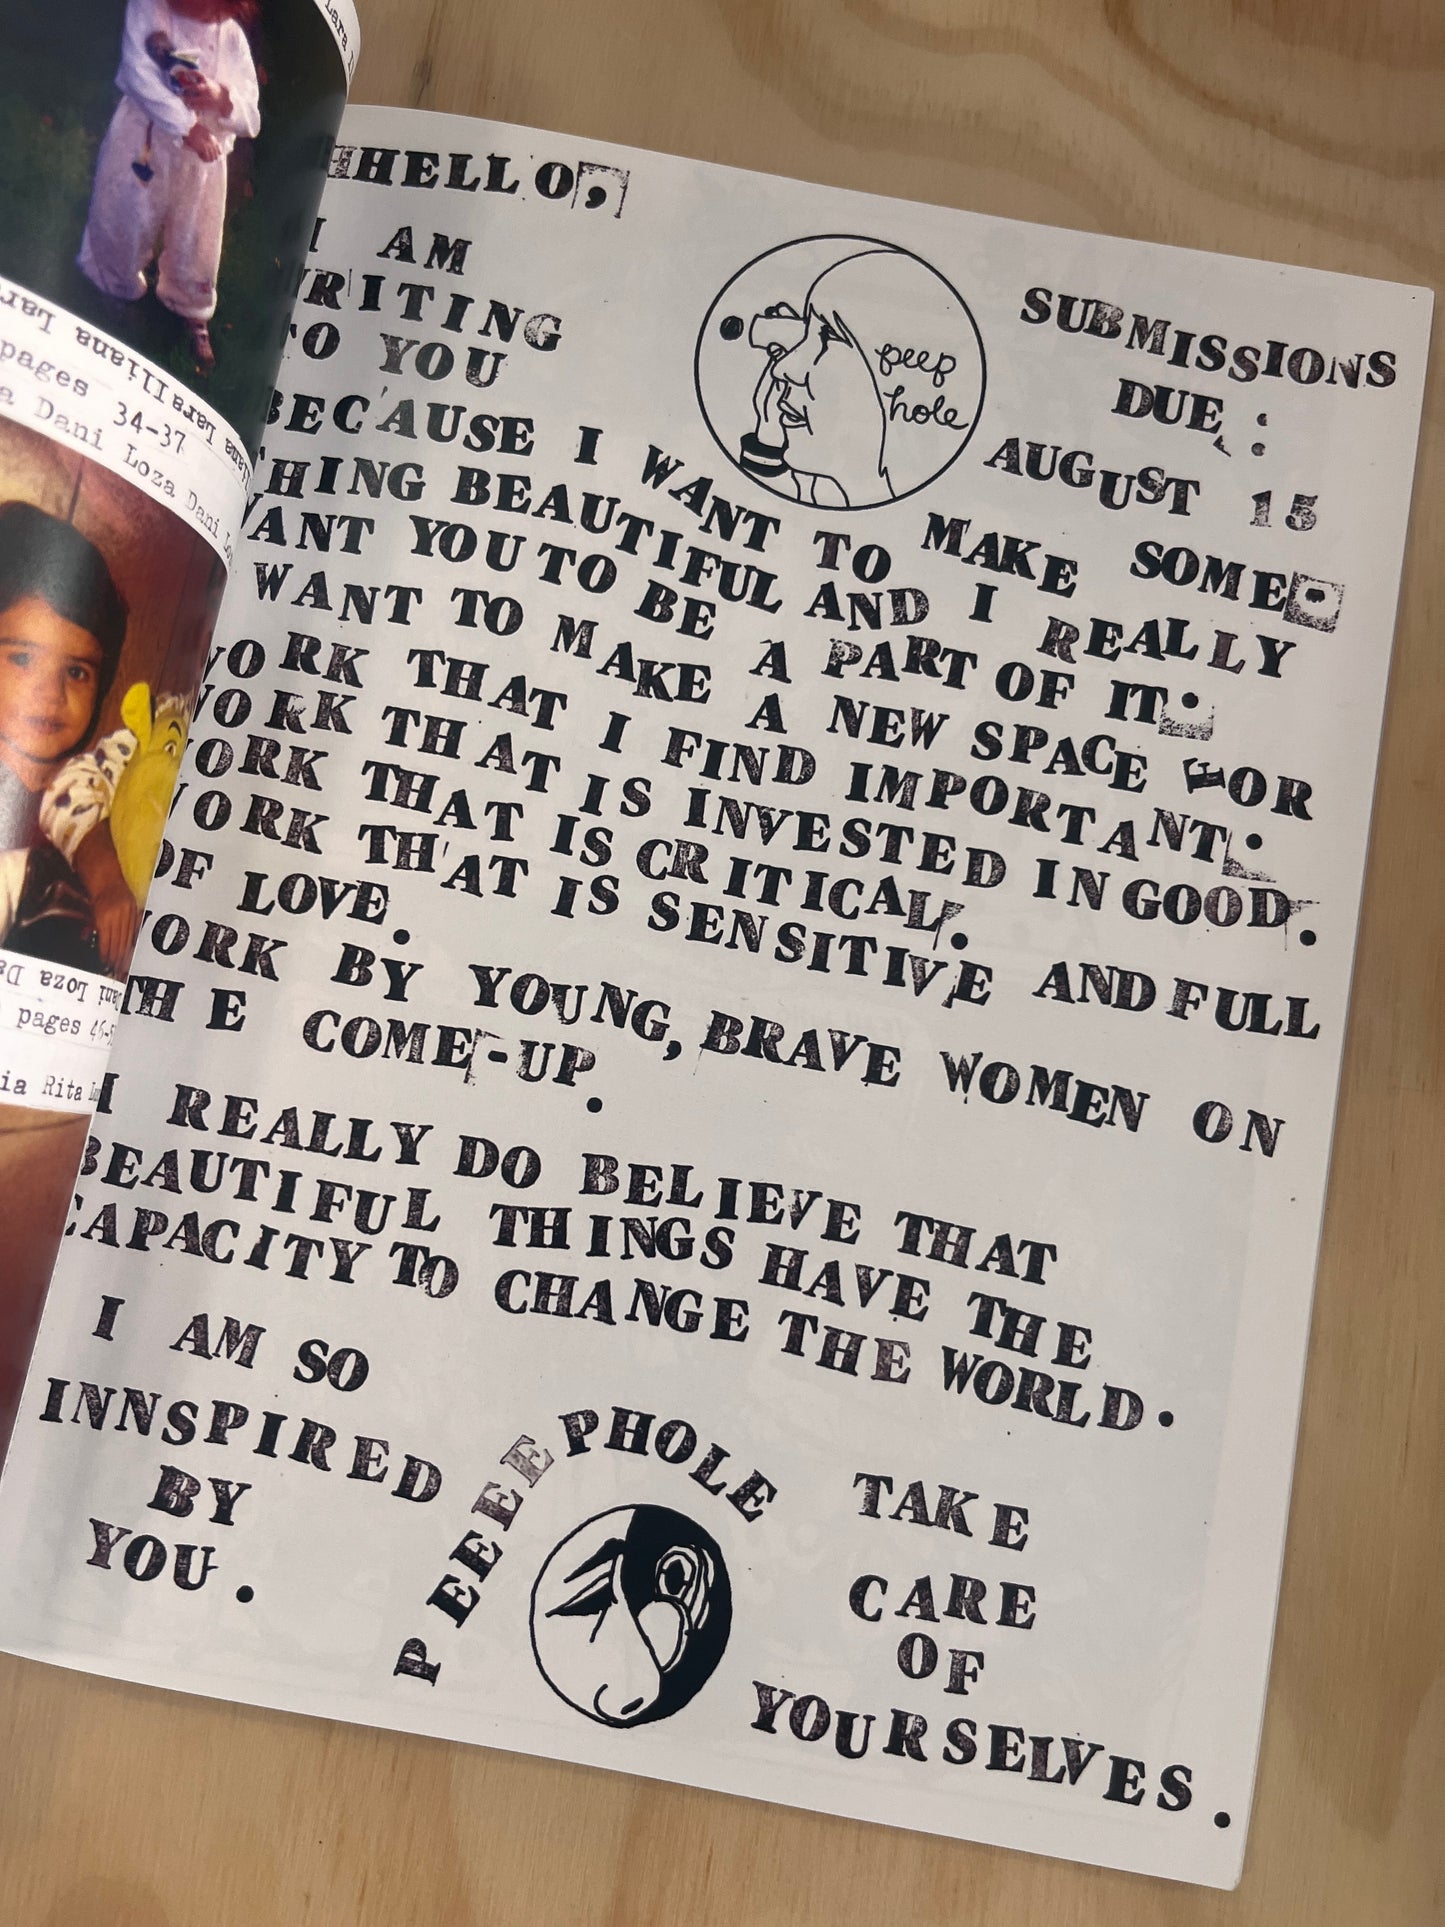 HHELLO,
I AM
WRITING
TO YOU
BECAUSE I WANT TO MAKE SOME
THING BEAUTIFUL AND I REALLY
WANT YOU TO BE A PART OF IT.
WANT TO MAKE A NEW SPACE FOR
WORK THAT I FIND IMPORTANT.
WORK THAT IS INVESTED IN GOOD.
WORK THAT IS CRITICAL.
WORK THAT IS SENSITIVE AND FULL
OF LOVE.
WORK BY YOUNG, BRAVE WOMEN ON
THE COME-UP.
I REALLY DO BELIEVE THAT
BEAUTIFUL THINGS HAVE THE
CAPACITY TO CHANGE THE WORLD.
I AM SO
INNSPIRED
BY
YOU.
PEEEEPHOLE
TAKE
CARE
OF
YOURSELVES.
peep
hole
SUBMISSIONS
DUE:
AUGUST 15
Laralliana Lar
pages 34-37
Dani Loza Dani
Dani Loza
pages
Rita